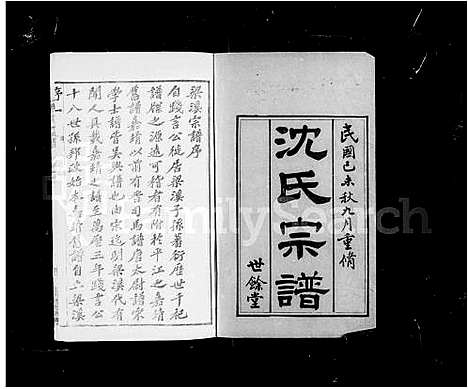 民國己未秋九月重脩
沈氏宗譜
世餘堂
梁溪宗譜序
自踐言公徙居梁溪子孫蕃衍歷世千祀
譜牒之源遠可稽者有附於平江之嘉靖
舊譜嘉靖以前有晉司馬譜唐太尉譜宋
學士譜皆吳興譜也由宋迄明梁溪代有
聞人具載嘉靖之譜至萬曆三年踐言公
十八世孫郅政始本嘉靖舊譜自立梁溪
序一
FamilySearch